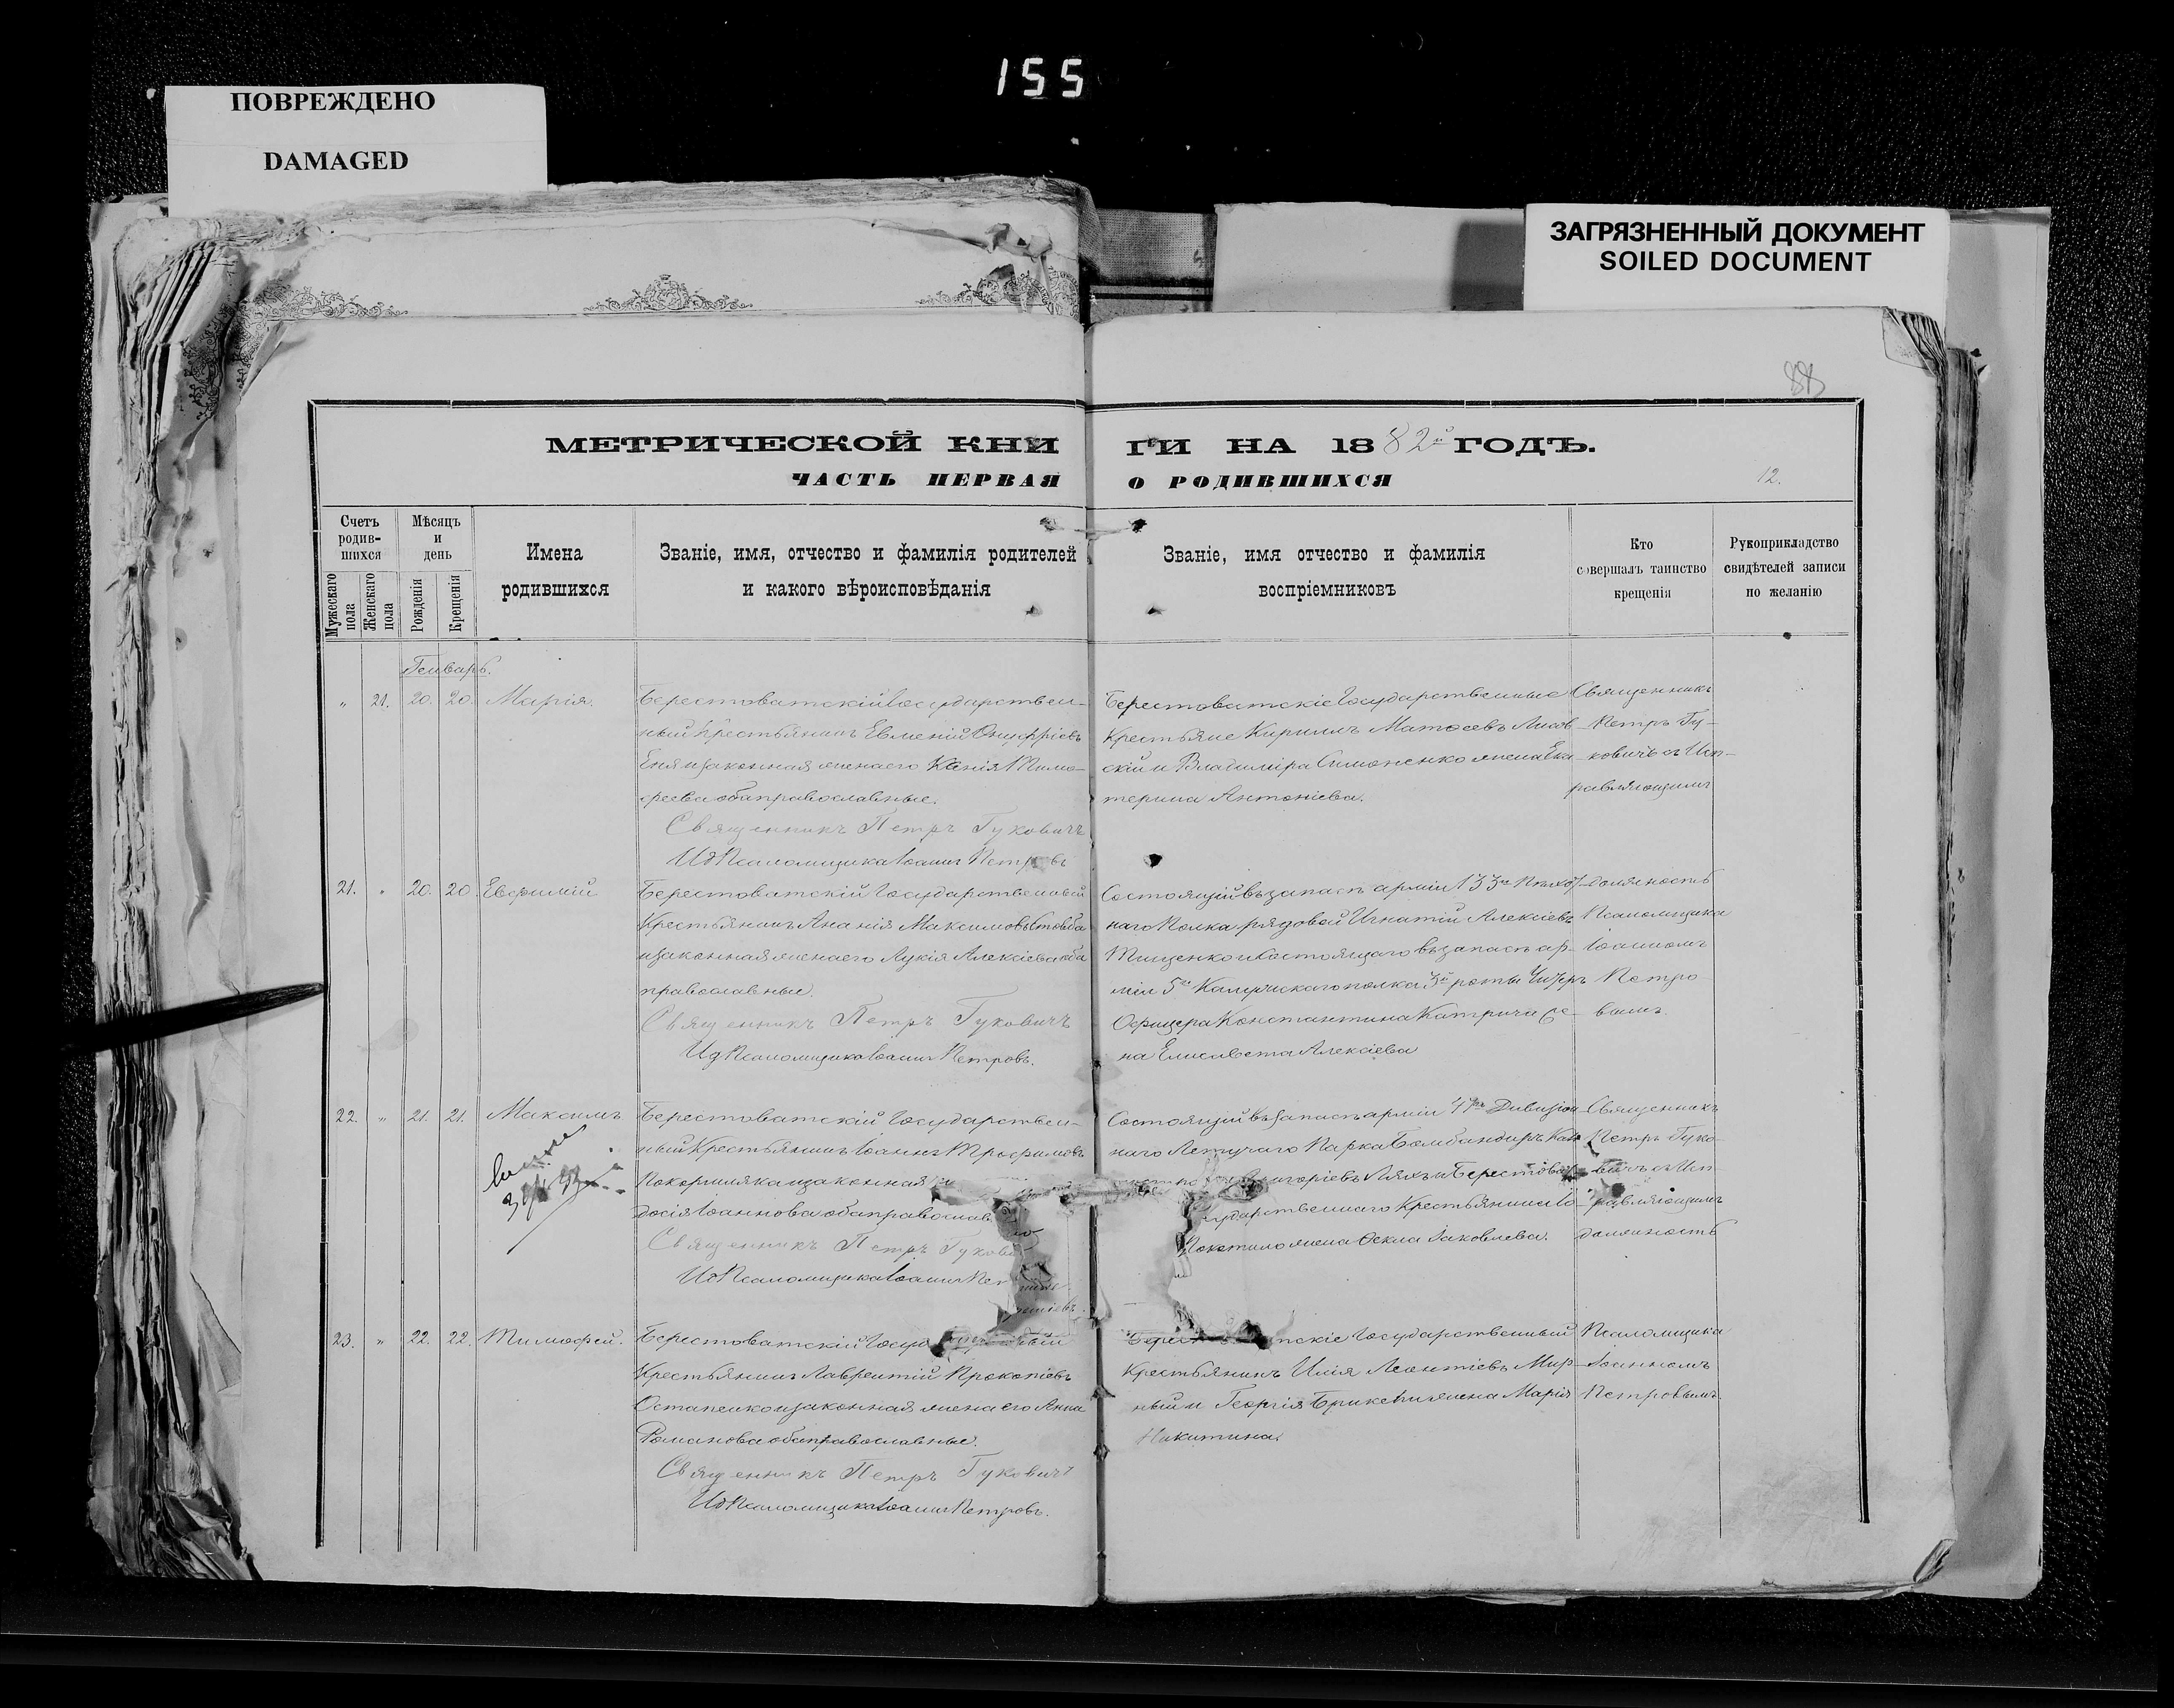 155
ПОВРЕЖДЕНО
DAMAGED
ЗАГРЯЗНЕННЫЙ ДОКУМЕНТ
SOILED DOCUMENT
88
МЕТРИЧЕСКОЙ КНИГИ НА 1882й ГОДЪ.
ЧАСТЬ ПЕРВАЯ О РОДИВШИХСЯ
12.
Счетъ родив-шихся
Мужескаго пола
Женскаго пола
Мѣсяцъ и день
Рожденія
Крещенія
Имена родившихся
Званіе, имя, отчество и фамилія родителей
и какого вѣроисповѣданія
Званіе, имя отчество и фамилія
воспріемниковъ
Кто
совершалъ таинство
крещенія
Рукоприкладство
свидѣтелей записи
по желанію
Генварь.
" 21. 20. 20. Марія.
Берестоватскій Государствен-
ный Крестьянинъ Евменій Онуфріевъ
законная жена его Тимо-
феева оба православные.
Священникъ Петръ Гуковичъ
Ид Псаломщика Іоаннъ Петровъ
Берестоватскіе Государственные
Крестьяне Кириллъ Матѳеевъ Лисов-
скій и Владиміра Симоненко жена Ека-
терина Антоніева.
Священникъ
Петръ Гу-
ковичъ съ Исп-
равляющимъ
21. " 20. 20. Евфимій
Берестоватскій Государственный
Крестьянинъ Ананія Максимовъ Стовба
и законная жена его Лукія Алексіева оба
православные.
Священникъ Петръ Гуковичъ
Ид Псаломщика Іоаннъ Петровъ.
Состоящій въ запасѣ арміи 133го Пѣхот-
наго Полка рядовой Игнатій Алексіевъ
Тищенко и Состоящаго въ запасѣ ар-
міи 5го Калужскаго полка 3й роты Унтеръ
Офицера Константина Катрича же-
на Елисавета Алексіева
должность
Псаломщика
Іоанномъ
Петро-
вымъ.
22. " 21. 21. Максимъ
Берестоватскій Государствен-
ный Крестьянинъ Іоаннъ Трофимовъ
Покотиляка и законная
досія Іоаннова оба православ
Священникъ Петръ Гукови
Ид Псаломщика Іоаннъ Пет
Состоящій въ запасѣ арміи Дивизіон-
наго Летучаго Парка Бомбандиръ
Григоріевъ Ляхъ и Берестоват
ударственнаго Крестьянина Іо
Покотило жена Ѳекла Іаковлева.
Священникъ
Петръ Гуко-
вичъ съ Исп-
равляющимъ
должность
23. " 22. 22. Тимофей.
Берестоватскій Госуд
Крестьянинъ Лаврентій Прокопіевъ
Остапенко и законная жена его Анна
Романова оба православные.
Священникъ Петръ Гуковичъ
Ид Псаломщика Іоаннъ Петровъ.
Берест тскіе Государственный
Крестьянинъ Илія Леонтіевъ Мир-
ный и Георгія жена Марія
Никитина.
Псаломщика
Іоанномъ
Петровымъ.